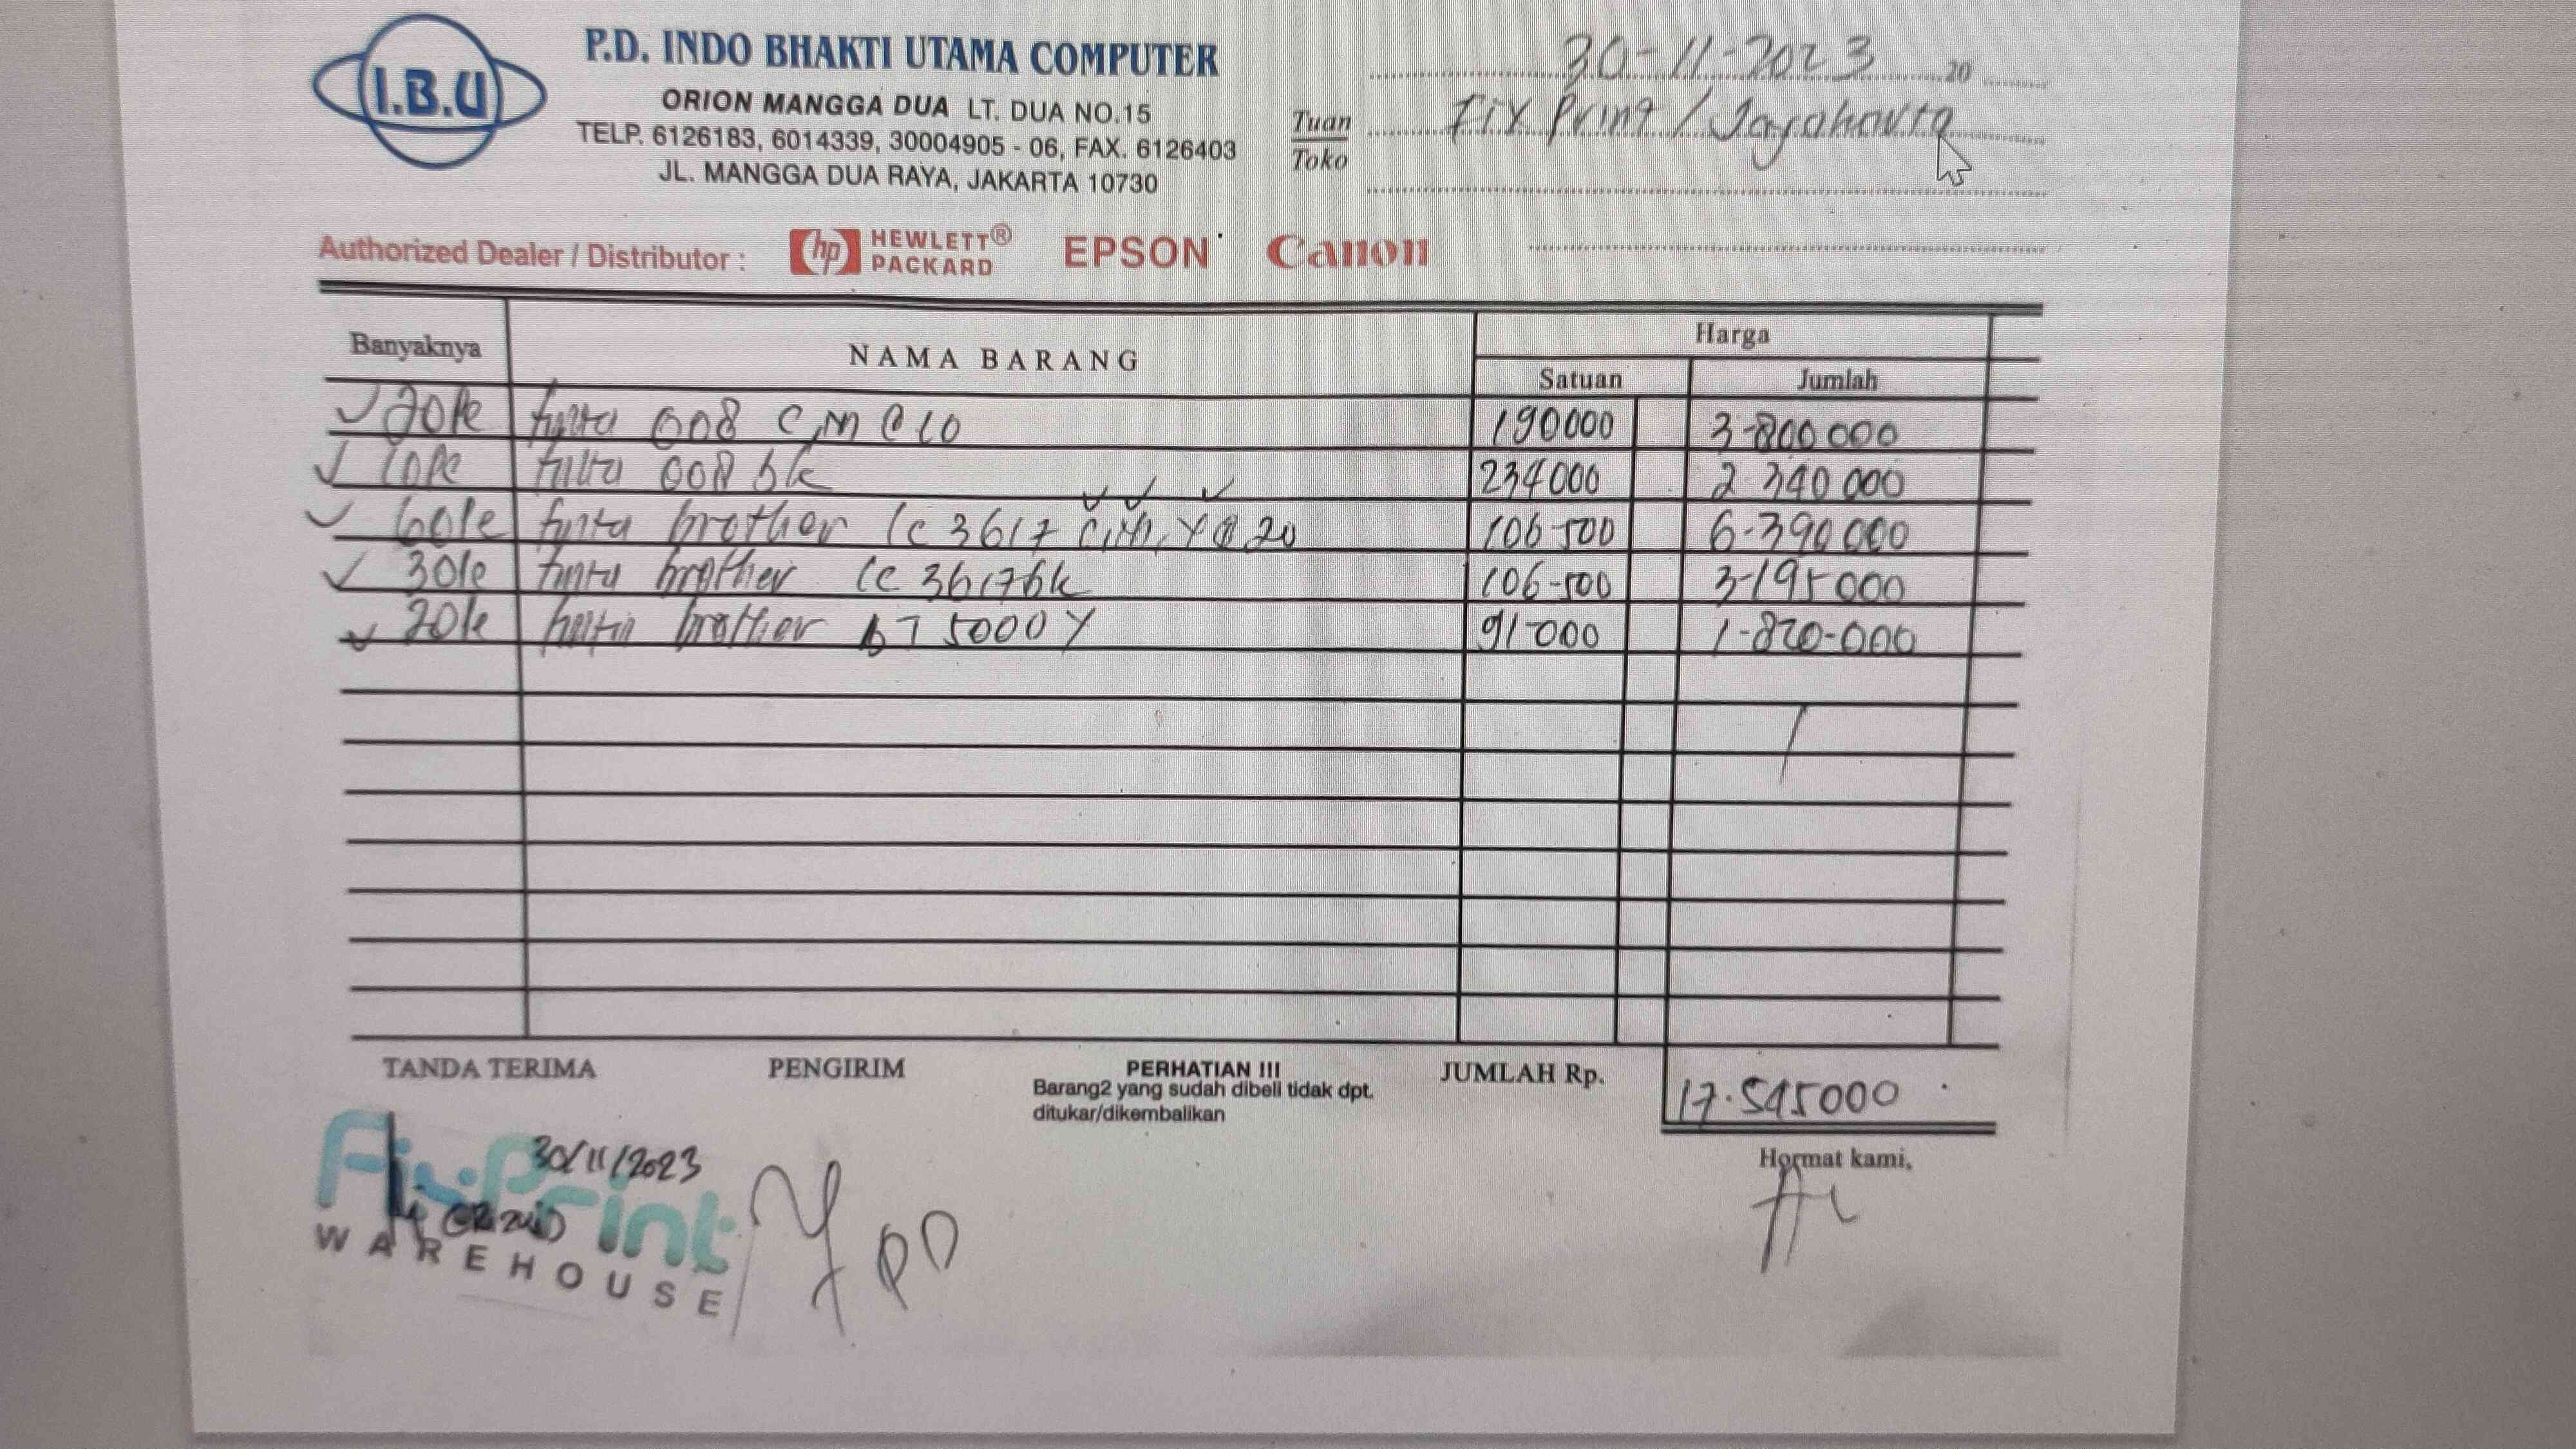 I.B.U
P.D. INDO BHAKTI UTAMA COMPUTER
ORION MANGGA DUA LT. DUA NO.15
TELP. 6126183, 6014339, 30004905 - 06, FAX. 6126403
JL. MANGGA DUA RAYA, JAKARTA 10730
30-11-2023 20
Tuan Fix Print / Jayakarta
Toko
Authorized Dealer / Distributor : hp HEWLETT® PACKARD EPSON Canon
Banyaknya NAMA BARANG Harga
Satuan Jumlah
20 tinta 008 C,M @ 10 190000 3-800 000
10 tinta 008 bk 234000 2 340 000
60 tinta brother lc 3617 C,M,Y @ 20 106-500 6-390 000
30 tinta brother lc 3617bk 106-500 3-195 000
20 brother bT 5000 Y 91-000 1-820-000
TANDA TERIMA PENGIRIM PERHATIAN !!! JUMLAH Rp. 17.545000
Barang2 yang sudah dibeli tidak dpt.
ditukar/dikembalikan
Hormat kami,
30/11/2023
FixPrint
WAREHOUSE